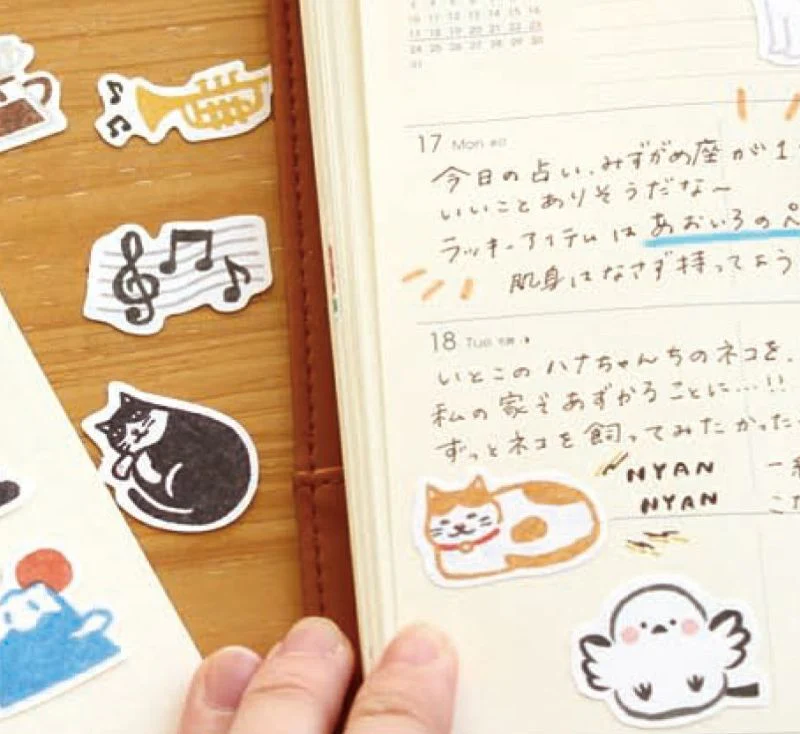 10 11 12 13 14 15 16
17 18 19 20 21 22 23
24 25 26 27 28 29 30
31
17 Mon
今日の占い、みずがめ座が1
いいことありそうだな〜
ラッキーアイテムは あおいろのペ
肌身はなさず持ってよう
18 Tue
いとこのハナちゃんちのネコを、
私の家であずかることに…!!
ずっとネコを飼ってみたかった
NYAN 一緒
NYAN こ